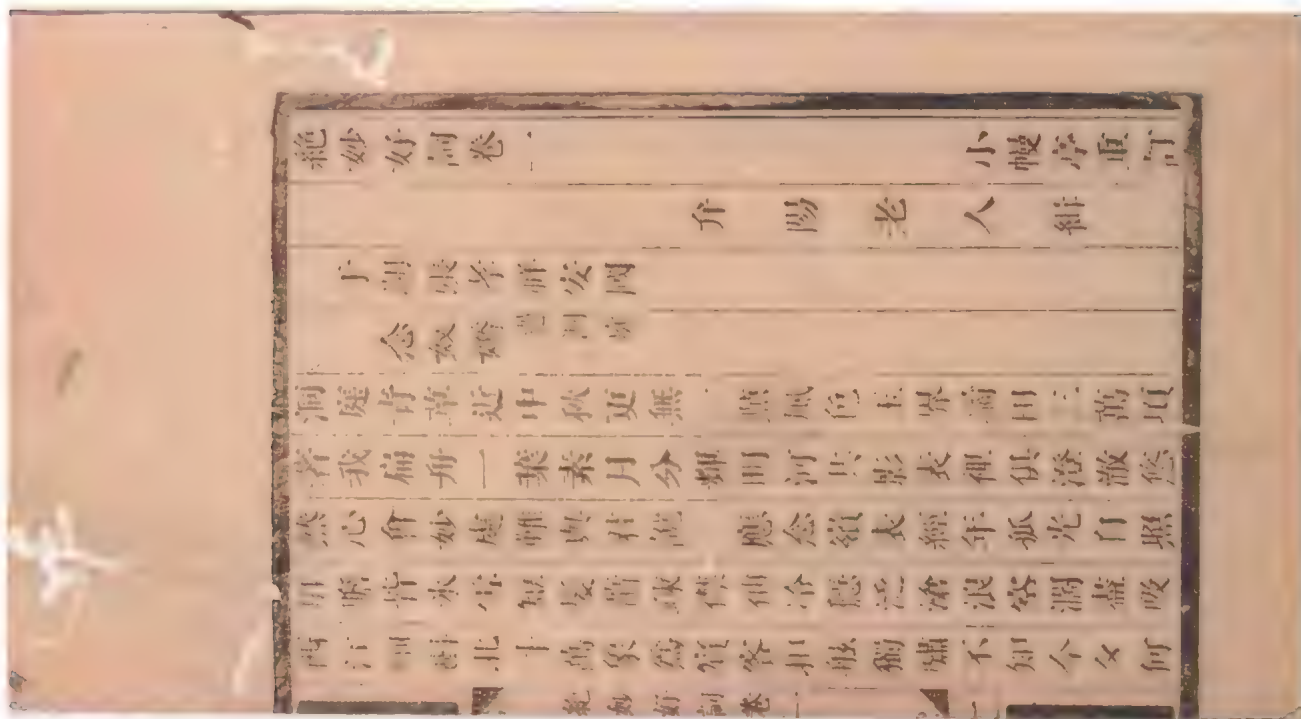 絶妙好詞卷一 小幔亭重訂
弁陽老人緝
于湖張孝祥安國
念奴嬌 過洞庭
洞庭青草近中秋更無一點風色玉界瓊田三萬頃
著我扁舟一葉素月分輝明河共影表裡俱澄澈悠
然心會妙處難與君說 應念嶺表經年孤光自照
肝膽皆冰雪短髮蕭疎襟袖冷穩泛滄浪空濶盡吸
西江細斟北斗萬象爲賓客扣舷獨嘯不知今夕何
絶妙好詞卷一 一